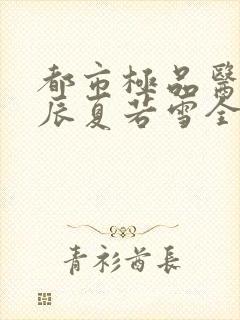 都市極品醫
辰夏若雪全
青衫酋長